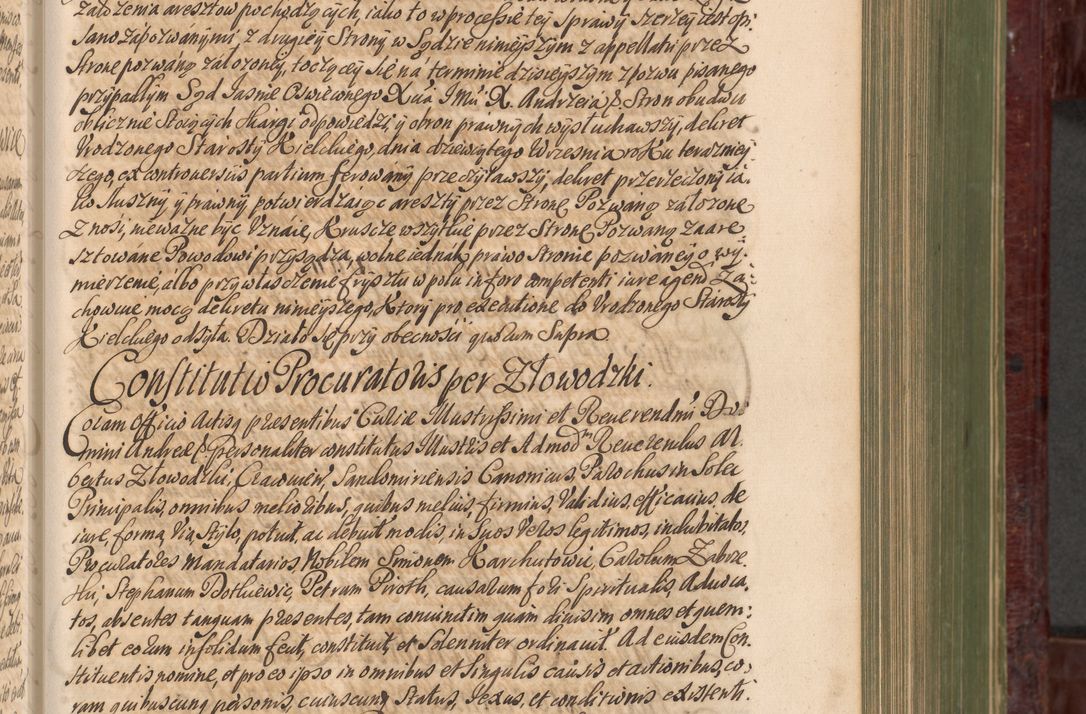 założenia aresztow pochodzących, iako to w processie tey Sprawy szerzey iest opi:
sano zapozwanymi, z drugiey Strony w Sądzie ninieyszym z appellaty przez
Stronę pozwaną założoney, toczącey się na terminie dzisieyszym z pozwu pisanego
przypadłym Sąd Jasnie Oswieconego Xcia JMci X. Andrzeia &. Stron obudwu
oblicznie stoiących skargi odpowiedzi, y obron prawnych wysłuchawszy, dekret
Urodzonego Starosty Kielckiego, dnia dziewiątego Wrzesnia roku terazniey:
szego, ex controversiis partium ferowany przeczytawszy, dekret przerzeczony ia:
ko słuszny y prawny, potwierdzaiąc areszty przez Stronę Pozwaną założone
Znosi, nieważne być Uznaie, Kruszcze wszytkie przez Stronę Pozwaną zaare:
sztowane Powodowi przysądza, wolne iednak prawo Stronie pozwaney o wy:
mierzenie, albo przywłaszczenie frysztu w polu in foro competenti iure agendi Za:
chowuie mocą dekretu ninieyszego, ktory pro executione do Urodzonego Starosty
Kielckiego odsyła. Działo się przy obecności quorum Supra
Constitutio Procuratoris per Złowodzki.
Coram Officio Actisq presentibus Curiæ Illustrissimi et Reverendmi Do:
mini Andreæ &. Personaliter constitutus Illustris et Admodm Reverendus Al:
bertus Złowodzki, Cracovien, Sandomiriensis Canonicus, Parochus in Solec
Principalis, omnibus melioribus, quibus melius, firmius, Validius, efficacius de
iure, forma, Via, Stylo, potuit, ac debuit modis, in Suos Veros legitimos, indubitatos
Procuratores Mandatarios, Nobilem Simonem Karchutowic, Carolum Zabrze:
ski, Stephanum Dotkiewic, Petrum Piroth, causarum fori Spiritualis, Advoca:
tos, absentes tanquam presentes, tam coniunctim quam divisim omnes et quem:
libet eorum in solidum fecit, constituit, et Solenniter ordinavit. Ad eiusdem Con:
stituentis nomine, et pro eo ipso in omnibus et Singulis causis et actionibus, co:
ram quibuscunq personis, cuiuscunq Status, Sexus, et conditionis existenti: